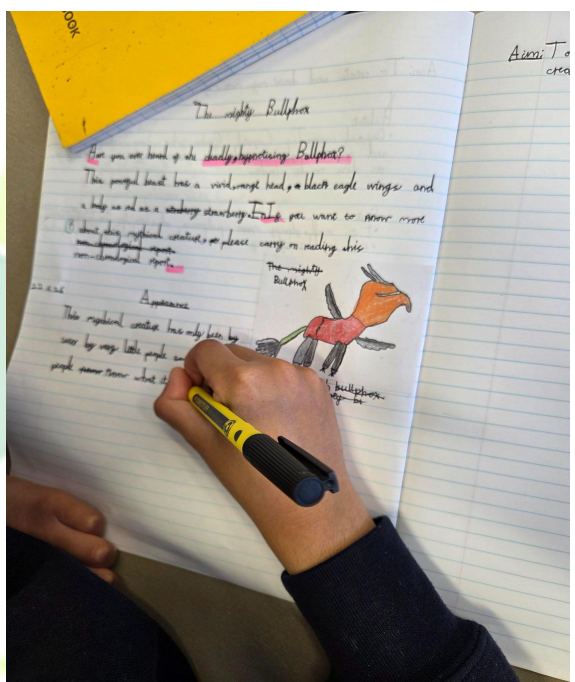 OOK
The mighty Bullphox
Have you ever heard of the deadly, hypnotising Bullphox?
This powerful beast has a vivid, orange head, black eagle wings and
a body as red as a strawberry strawberry. If you want to know more
about this mythical creature, please carry on reading this
non-chronological report
non-chronological report.
The mighty
Bullphox
Appearance
This mythical creature has only been
seen by very little people
people know what it
bullphox
Aim: To
crea